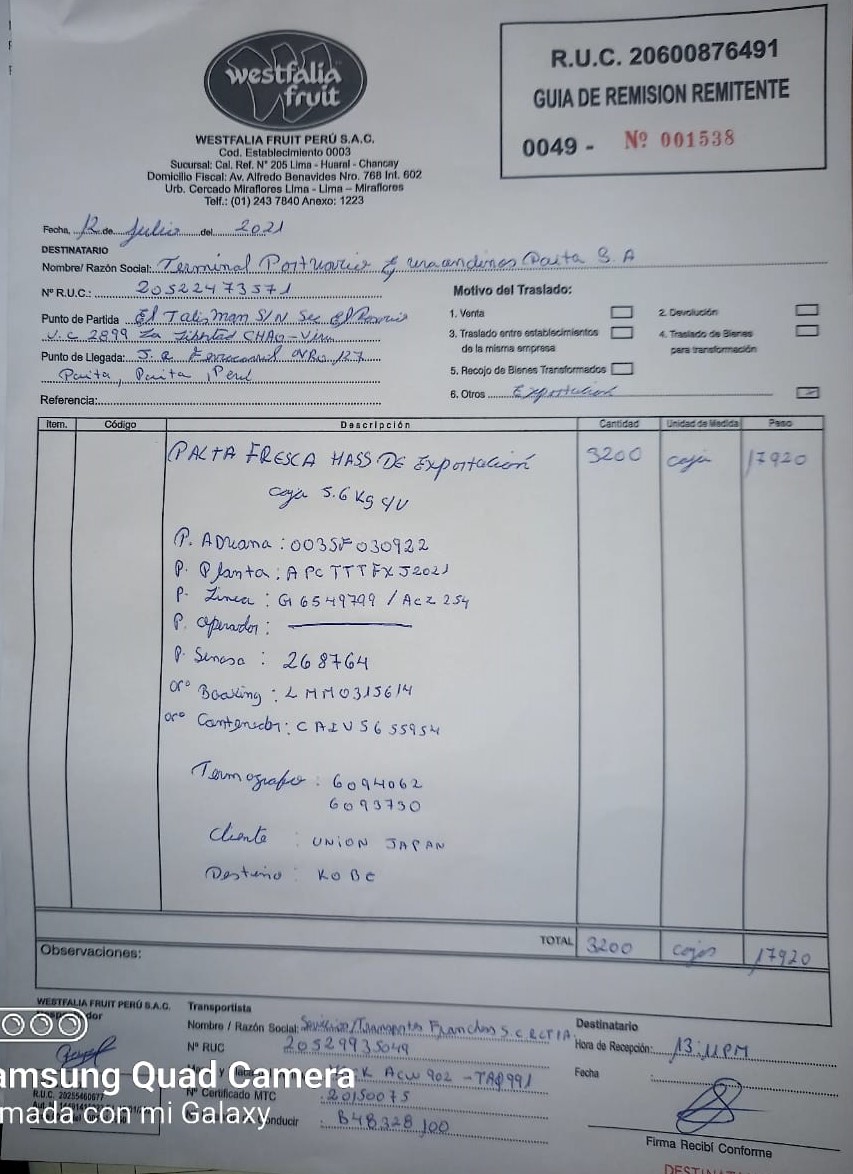 westfalia
fruit
WESTFALIA FRUIT PERÚ S.A.C.
Cod. Establecimiento 0003
Sucursal: Cal. Ref. N° 205 Lima - Huaral - Chancay
Domicilio Fiscal: Av. Alfredo Benavides Nro. 768 Int. 602
Urb. Cercado Miraflores Lima - Lima – Miraflores
Telf.: (01) 243 7840 Anexo: 1223
R.U.C. 20600876491
GUIA DE REMISION REMITENTE
0049 - Nº 001538
Fecha, 12 de Julio del 2021
DESTINATARIO
Nombre/ Razón Social: Terminal Portuario Euroandinos Paita S.A
N° R.U.C.: 20522473571
Punto de Partida El Talisman S/N Sec El Rosario
U.C 2899 La Libertad CHAO - Viru
Punto de Llegada: J.R Ferrocarril NRo 127
Paita, Paita, Perú
Referencia:
Motivo del Traslado:
1. Venta
2. Devolución
3. Traslado entre establecimientos
de la misma empresa
4. Traslado de Bienes
para transformación
5. Recojo de Bienes Transformados
6. Otros Exportacion
Item. Código Descripción Cantidad Unidad de Medida Peso
PALTA FRESCA HASS DE Exportación 3200 caja 17920
caja 5.6 Kg c/u
P. Aduana : 003SF030922
P. Planta : APCTTTFXJ2021
P. Linea : G16549799 / ACZ 254
P. operador :
P. Senasa : 268764
Nro Booking : LMM0315614
Nro Contenedor : CAIU5655954
Termografo : 6094062
6093730
Cliente : UNION JAPAN
Destino : KOBE
TOTAL 3200 cajas 17920
Observaciones:
WESTFALIA FRUIT PERÚ S.A.C.
Transportista
Nombre / Razón Social: Servicios/Transportes Franchos S.C.RLTIA
N° RUC 20529935049
ACW 902 - TAQ991
N° Certificado MTC : 20150075
conducir : B48328100
Destinatario
Hora de Recepción: 13:11PM
Fecha
Firma Recibí Conforme
R.U.C. 20255460677
amsung Quad Camera
mada con mi Galaxy